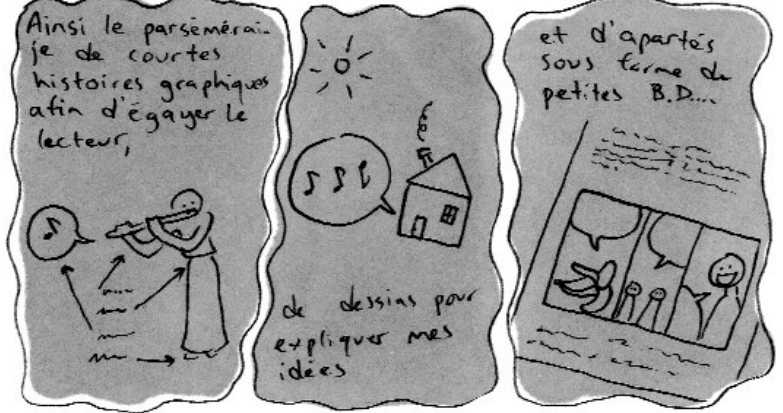 Ainsi le parsèmerai-
je de courtes
histoires graphiques
afin d'égayer le
lecteur,
de dessins pour
expliquer mes
idées
et d'apartés
sous forme de
petites B.D....